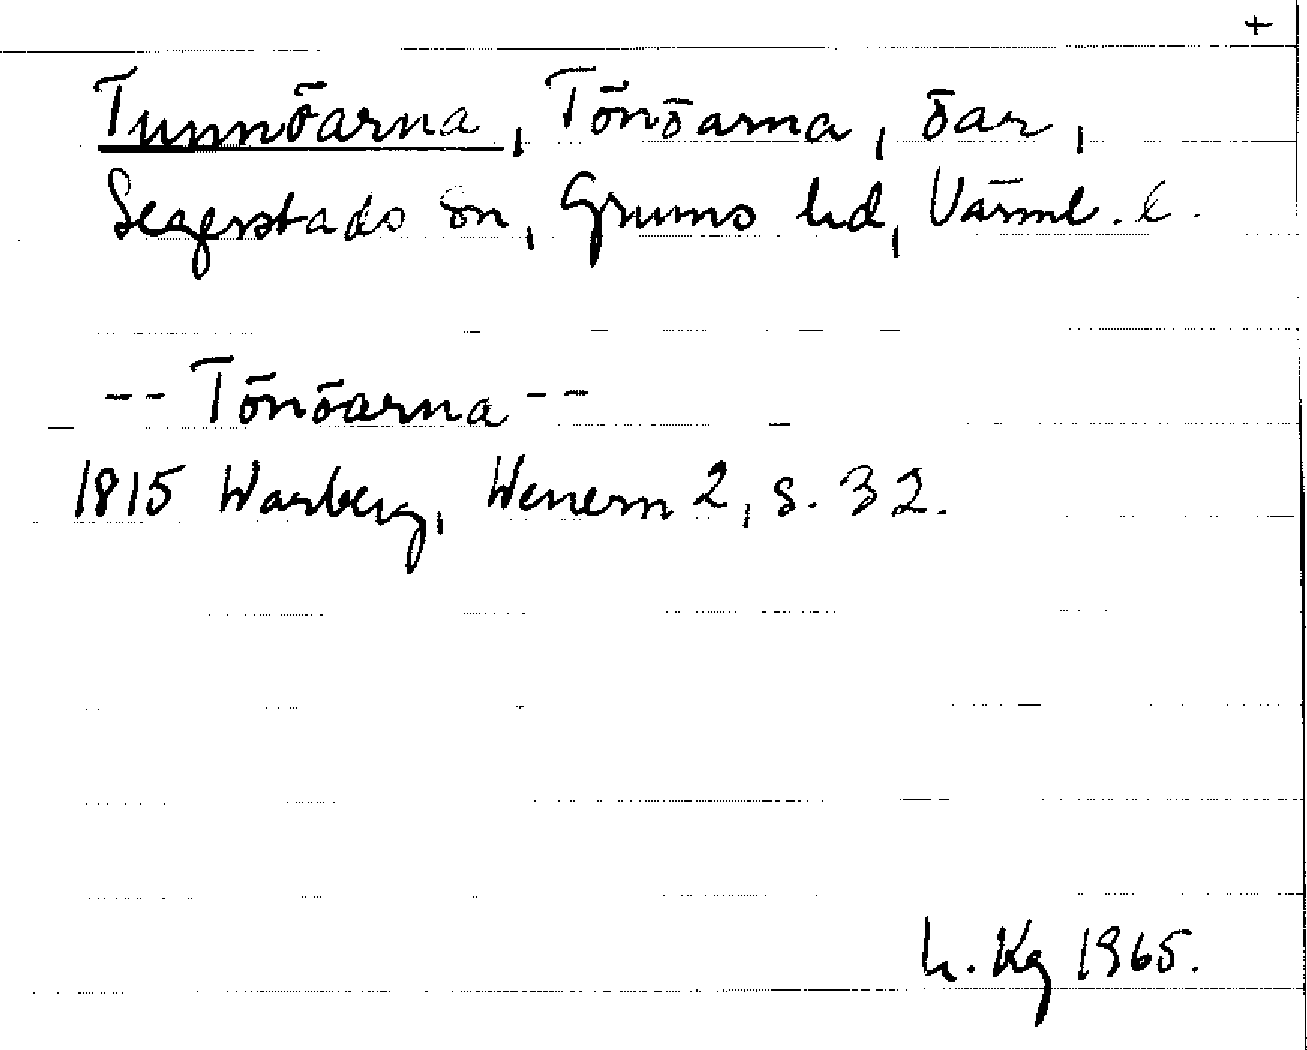 +
Tunnöarna, Tönöarna, öar,
Segerstads sn, Grums hd, Värml. l.
-- Tönöarna --
1815 Warberg, Wenern 2, s. 32.
h. Kg 1965.